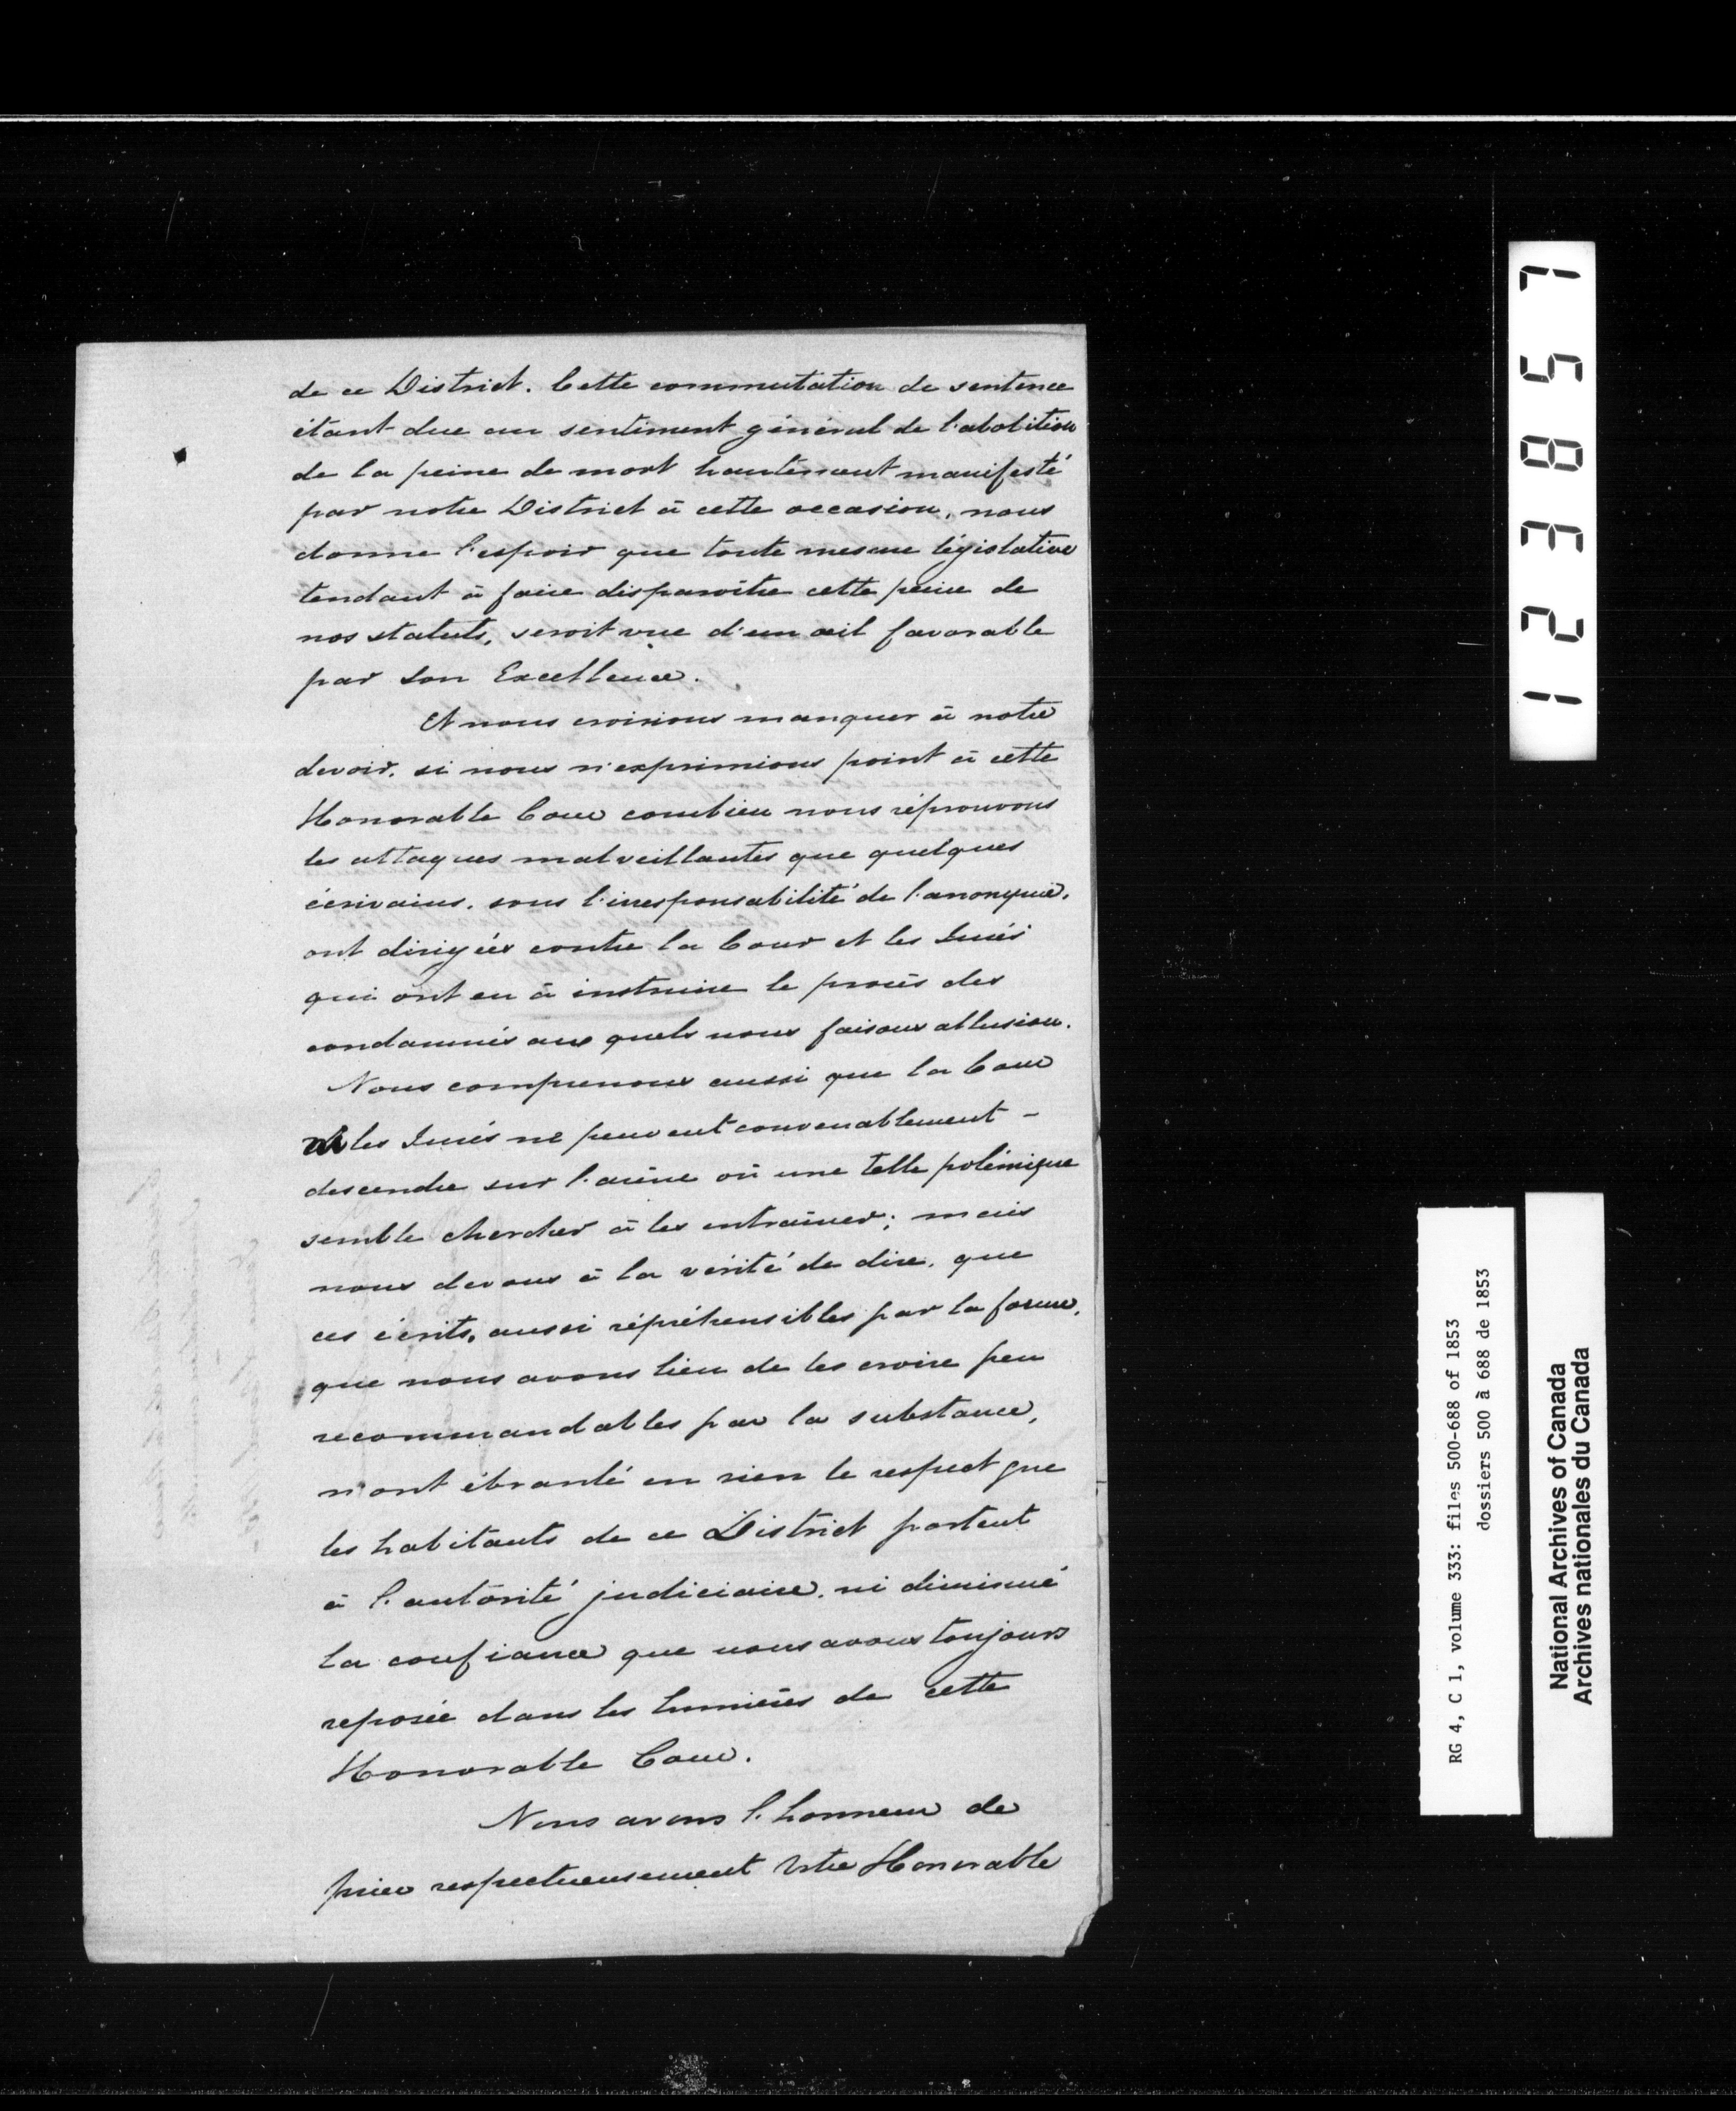 de ce District. Cette commutation de sentence
étant due au sentiment général de l'abolition
de la peine de mort hautement manifesté
par notre District à cette occasion, nous
donne l'espoir que toute mesure législative
tendant à faire disparoître cette peine de
nos statuts, seroit vue d'un œil favorable
par Son Excellence.
Et nous croirions manquer à notre
devoir, si nous n'exprimions point à cette
Honorable Cour combien nous réprouvons
les attaques malveillantes que quelques
écrivains, sous l'irresponsabilité de l'anonyme,
ont dirigées contre la Cour et les Jurés
qui ont eu à instruire le procès des
condamnés aux quels nous faisons allusion.
Nous comprenons aussi que la Cour
et les Jurés ne peuvent convenablement -
descendre sur l'arène où une telle polémique
semble chercher à les entraîner; mais
nous devons à la vérité de dire, que
ces écrits, aussi répréhensibles par la forme,
que nous avons lieu de les croire peu
recommandables par la substance,
n'ont ébranlé en rien le respect que
les habitants de ce District portent
à l'autorité judiciaire, ni diminué
la confiance que nous avons toujours
reposée dans les lumières de cette
Honorable Cour.
Nous avons l'honneur de
prier respectueusement Votre Honorable
123857
RG 4, C 1, volume 333: files 500-688 of 1853
dossiers 500 à 688 de 1853
National Archives of Canada
Archives nationales du Canada